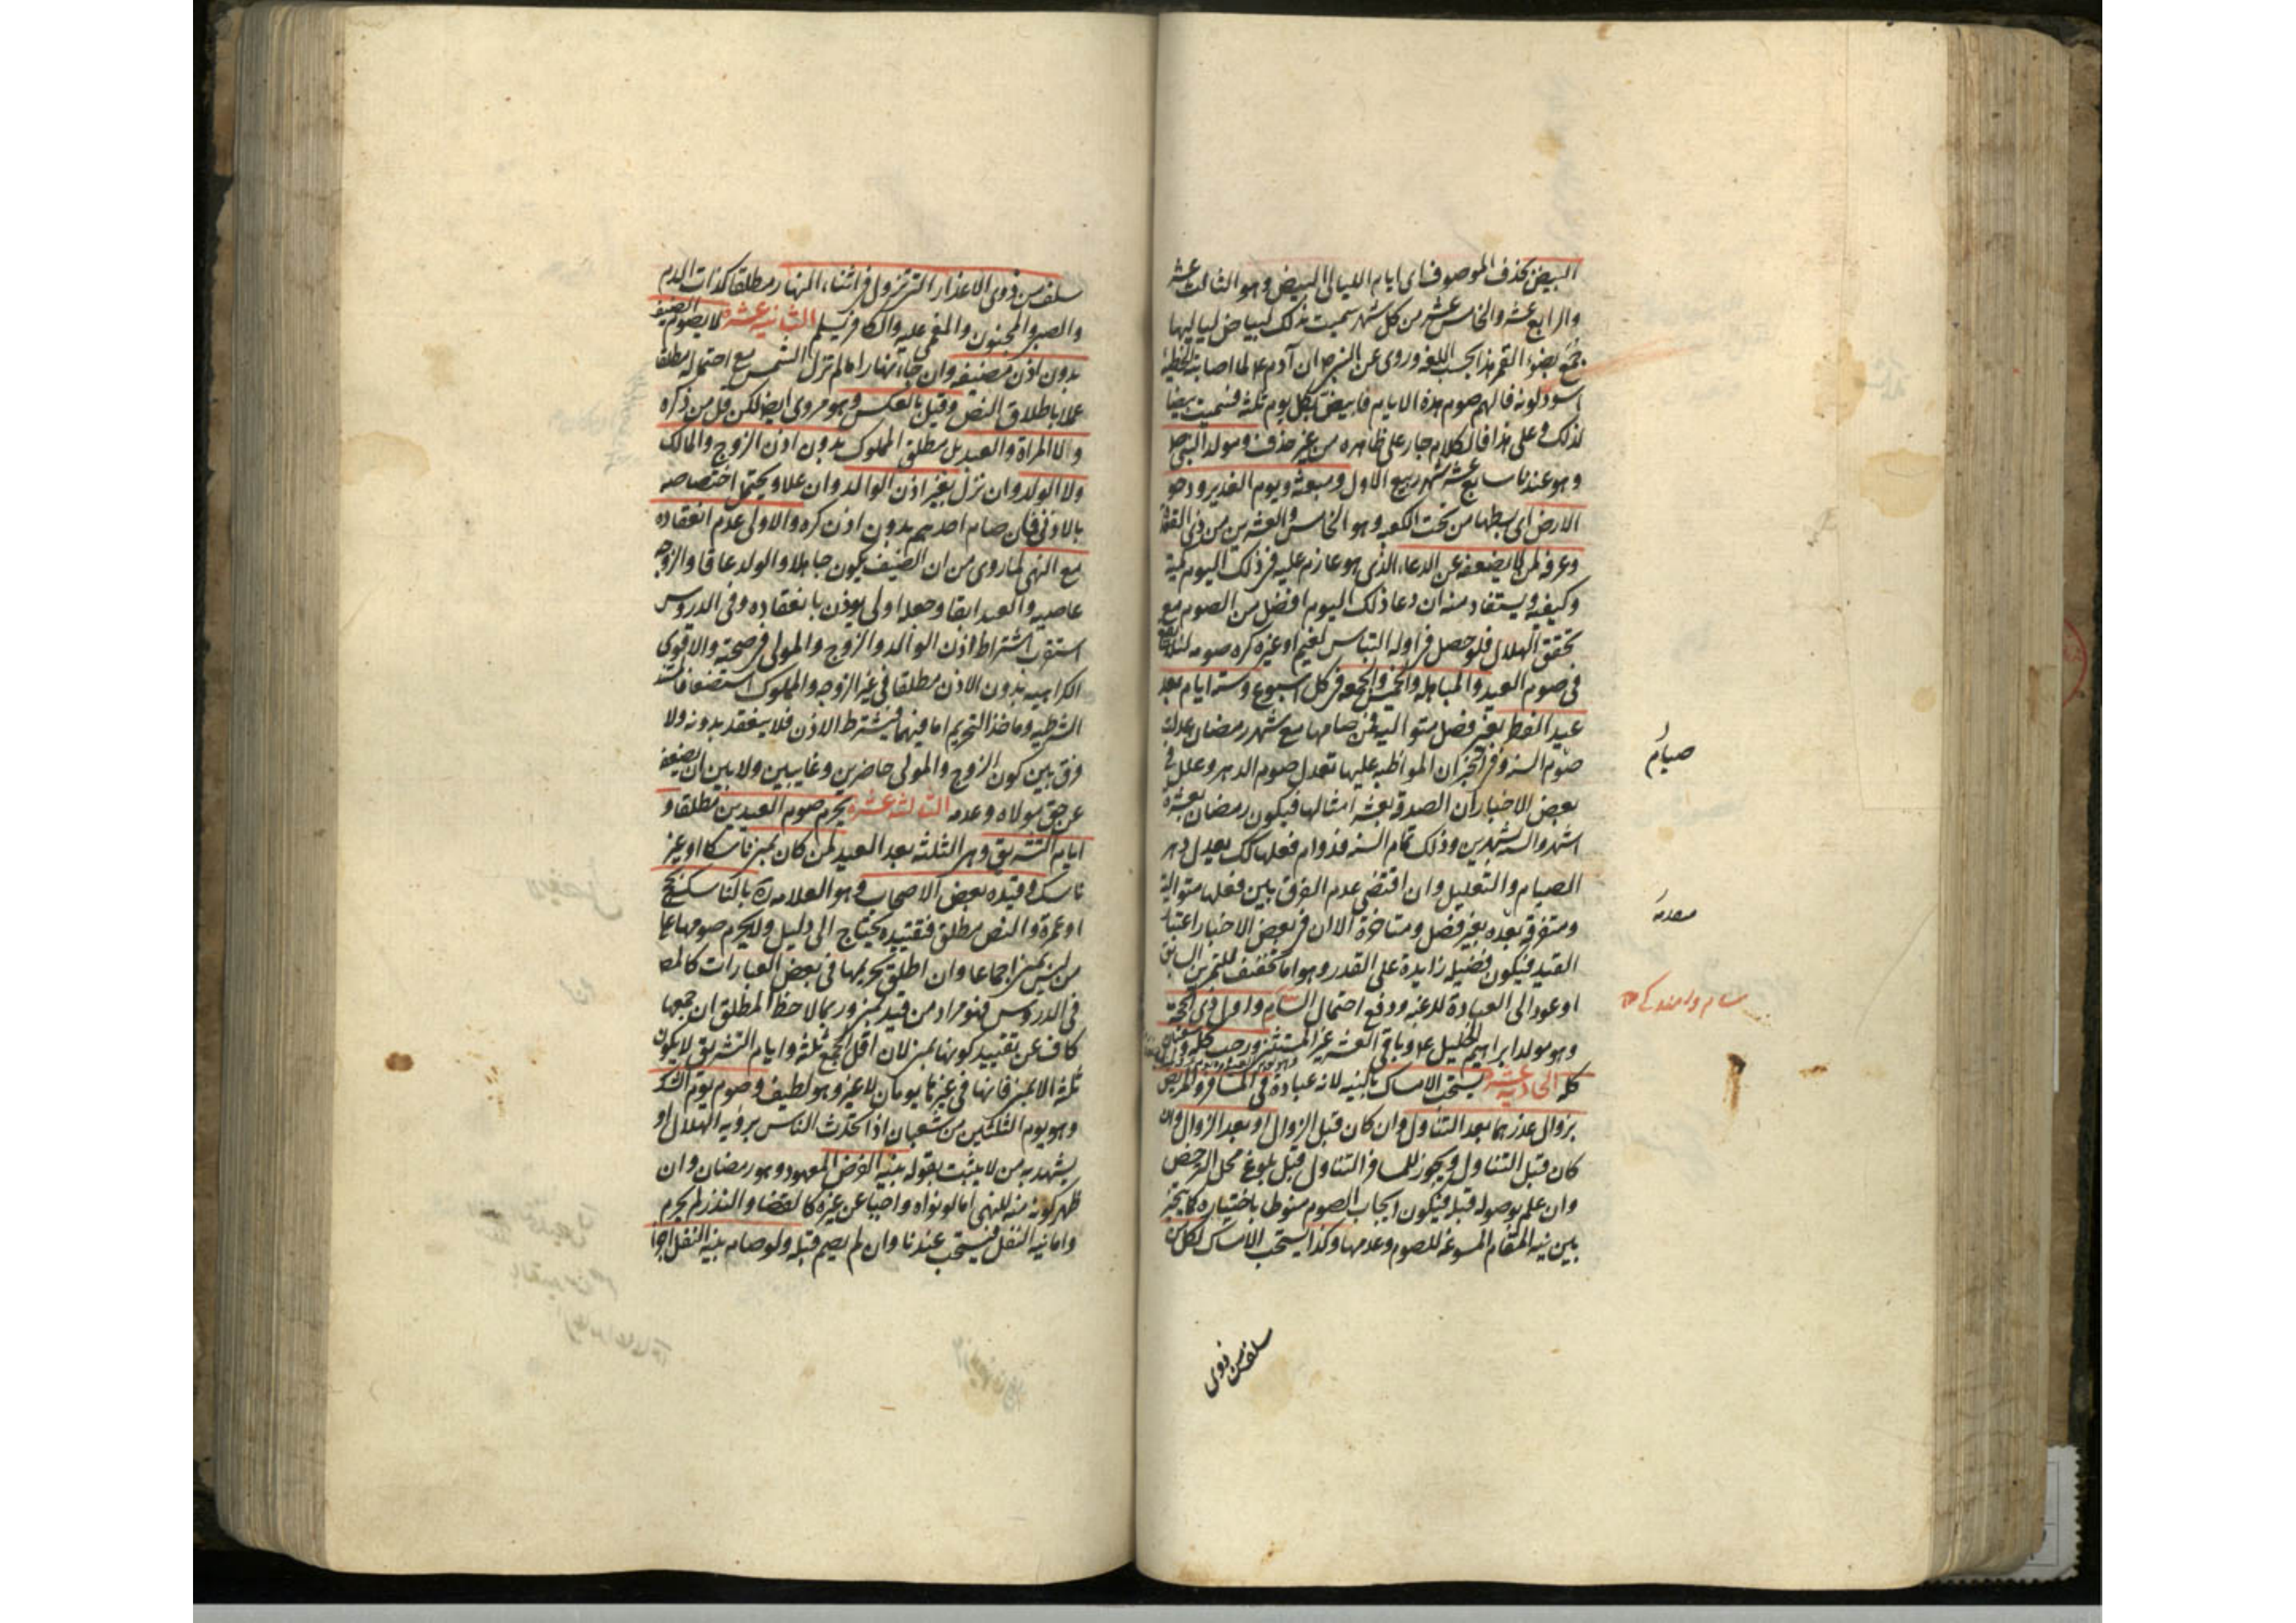 البيض بحذف الموصوف اى ايام الليالى البيض وهو الثالث عشر
والرابع عشر والخامس عشر من كل شهر سميت بذلك لبياض لياليها
جمع بضوء القمر هذا بحسب اللغه وروى عن النبى ص ان آدم ع لما اصابته الخطيئة
اسود لونه فالهم صوم هذه الايام فابيض بكل يوم ثلثه فسميت بيضا
لذلك و على هذا فالكلام جار على ظاهره من غير حذف ومولد النبى ص
وهو عندنا سابع عشر شهر ربيع الاول ومبعثه ويوم الغدير ودحو
الارض اى بسطها من تحت الكعبه وهو الخامس والعشرين من ذى القعدة
وعرفه لمن لا يضعفه عن الدعاء الذى هو عازم عليه فى ذلك اليوم كمية
وكيفيه ويستفاد منه ان دعا ذلك اليوم افضل من الصوم مع
تحقق الهلال فلو حصل فى اوله التباس لغيم او غيره كره صومه لئلا يقع
فى صوم العيد والمباهله والخميس والجمعه فى كل اسبوع وسته ايام بعد
عيد الفطر بغير فصل متواليه فمن صامها مع شهر رمضان عدلت
صوم السنه وفى الخبر ان المواظبه عليها تعدل صوم الدهر وعلل فى
بعض الاخبار ان الصدقه بعشر امثالها فيكون رمضان بعشرة
اشهر والسته بشهرين وذلك تمام السنه فدوام فعلها كك يعدل دهر
الصيام والتعليل وان اقتضى عدم الفرق بين فعلها متوالية
ومتفرقه بعده بغير فصل ومتاخرة الا ان فى بعض الاخبار اعتبار
القيد فيكون فضيله زايدة على القدر وهو اما تخفيف للتمرين السابق
او عود الى العبادة للرغبه ودفع احتمال السأم واول ذى الحجة
وهو مولد ابراهيم الخليل ع وباقى العشر غير المستثنى ورجب كله وشعبان
كله الحاديه عشرة يستحب الامساك بالنيه لانه عبادة فى المسافر والمريض
بزوال عذرهما بعد التناول وان كان قبل الزوال او بعد الزوال وان
كان قبل التناول ويجوز للمسافر التناول قبل بلوغ محل الترخص
وان علم بوصوله قبله فيكون ايجاب الصوم منوطا باختياره كما يتخير
بين نيه المقام المسوغه للصوم وعدمها وكذا يستحب الامساك لكل من
سلف من ذوى
صيام
سلف من ذوى الاعذار التى تزول فى اثناء النهار مطلقا كذات الدم
والصبى والمجنون والمغمى عليه والكافر يسلم الثانيه عشرة لا يصوم الضيف
بدون اذن مضيفه وان جاء نهارا ما لم تزل الشمس مع احتماله مطلقا
عملا باطلاق النص وقيل بالعكس وهو مروى ايضا لكن قل من ذكره
و لا المراة والعبد بل مطلق المملوك بدون اذن الزوج والمالك
ولا الولد وان نزل بغير اذن الوالد وان علا ويحتمل اختصاصه
بالادنى فان صام احدهم بدون اذن كره والاولى عدم انعقاده
مع النهى لما روى من ان الضيف يكون جاهلا والولد عاقا والزوجه
عاصيه والعبد ابقا وجعله اولى يوذن بانعقاده وفى الدروس
استقرب اشتراط اذن الوالد والزوج والمولى فى صحته والاقوى
الكراهيه بدون الاذن مطلقا فى غير الزوجه والمملوك استضعافا لمستند
الشرطيه وماخذ التحريم اما فيهما فيشترط الاذن فلا ينعقد بدونه ولا
فرق بين كون الزوج والمولى حاضرين وغايبين ولا بين ان يضعفه
عن حق مولاه وعدمه الثالثه عشرة يحرم صوم العيدين مطلقا و
ايام التشريق وهى الثلثه بعد العيد لمن كان بمنى ناسكا او غير
ناسك و قيده بعض الاصحاب وهو العلامه ره بالناسك بحج
او عمرة والنص مطلق فتقييده يحتاج الى دليل ولا يحرم صومها على
من ليس بمنى اجماعا وان اطلق تحريمها فى بعض العبارات كالمص
فى الدروس فهو مراد من قيد بمنى وربما لاحظ المطلق ان جمعها
كاف عن تقييد كونها بمنى لان اقل الجمع ثلثه وايام التشريق لا يكون
ثلثه الا بمنى فانها فى غيرها يومان لا غير وهو لطيف وصوم يوم الشك
وهو يوم الثلثين من شعبان اذا تحدث الناس برويه الهلال او
يشهد به من لا يثبت بقوله بنيه الفرض المعهود وهو رمضان وان
ظهر كونه منه للنهى اما لو نواه واجبا عن غيره كالقضا والنذر لم يحرم
واما نيه النفل فيستحب عندنا وان لم يصم قبله ولو صامه بنيه النفل اجزا